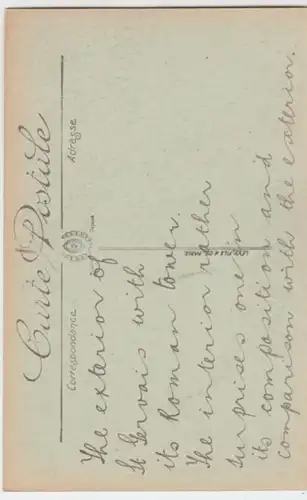 Carte Postale
Correspondance
Adresse
LEVY FILS & Cie, PARIS
The exterior of
St Gervais with
its Roman tower.
The interior rather
surprises one in
its composition and
comparison with the exterior.